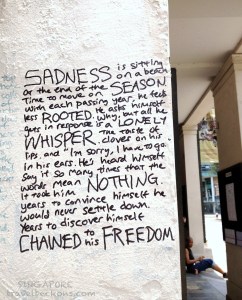 SADNESS is sitting
on a beach
at the end of the SEASON
Time to move on. He feels
with each passing year, he feels
less ROOTED. He asks himself
why, but all he
gets in response is a LONELY
WHISPER. The taste of
clover on his
lips. and "I'm sorry, I have to go."
in his ears. He's heard himself
say it so many times that the
words mean NOTHING.
It took him
years to convince himself he
would never settle down.
Years to discover himself
CHAINED to his FREEDOM
SINGAPORE
travelreckons.com